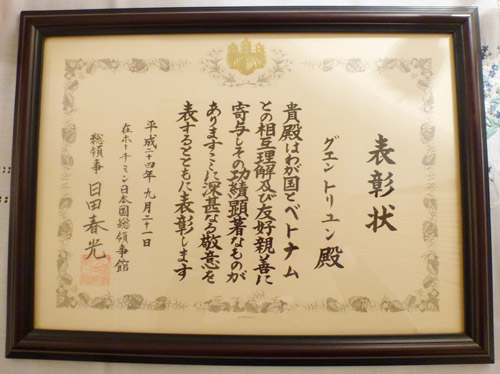 表彰状
グエン トリ ユン 殿
貴殿はわが国とベトナム
との相互理解及び友好親善に
寄与しその功績顕著なものが
ありますここに深甚なる敬意を
表するとともに表彰します
平成二十四年九月二十一日
在ホーチミン日本国総領事館
総領事 日田春光